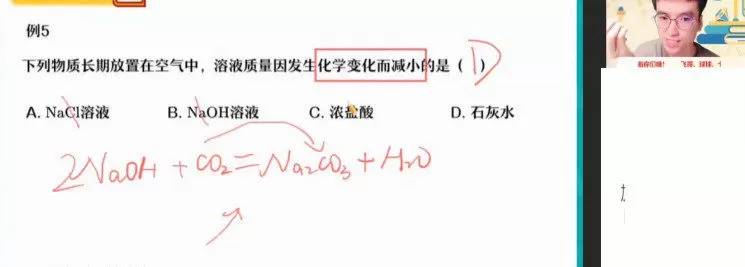 例5
下列物质长期放置在空气中，溶液质量因发生化学变化而减小的是（D）
A. NaCl溶液 B. NaOH溶液 C. 浓盐酸 D. 石灰水
2NaOH + CO₂ = Na₂CO₃ + H₂O